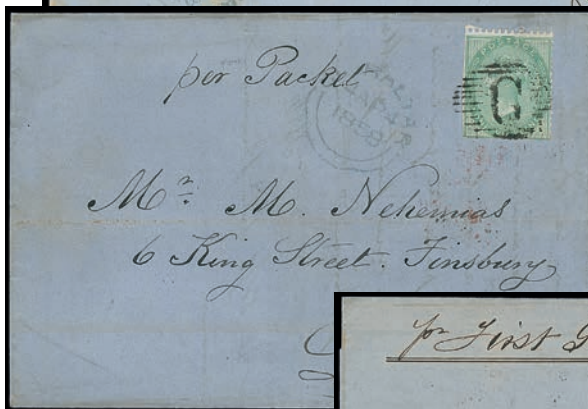 per Packet
POSTAGE
G
1858
Mr. M. Nehemias
6 King Street. Finsbury
pr First